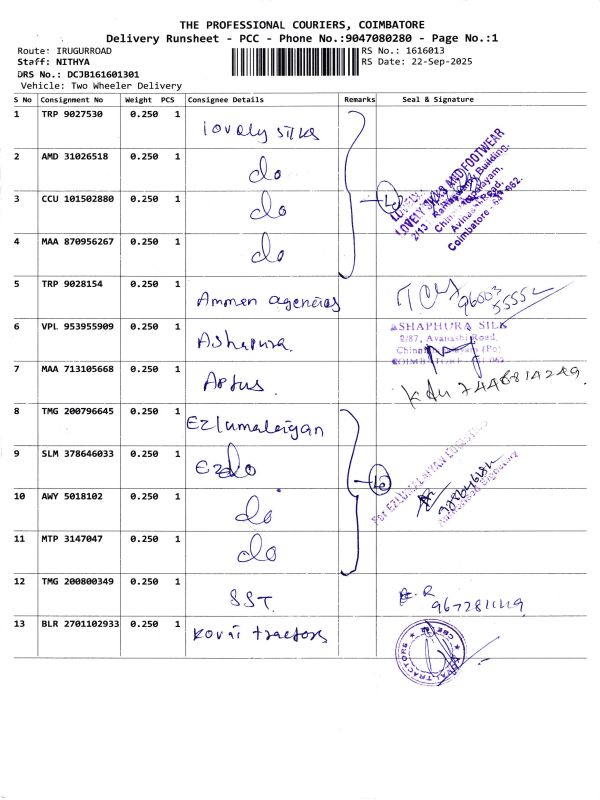 THE PROFESSIONAL COURIERS, COIMBATORE
Delivery Runsheet - PCC - Phone No.:9047080280 - Page No.:1
Route: IRUGURROAD
RS No.: 1616013
Staff: NITHYA
RS Date: 22-Sep-2025
DRS No.: DCJB161601301
Vehicle: Two Wheeler Delivery
S No Consignment No Weight PCS Consignee Details Remarks Seal & Signature
1 TRP 9027530 0.250 1 lovely silks
2 AMD 31026518 0.250 1 do
3 CCU 101502880 0.250 1 do
4 MAA 870956267 0.250 1 do
LOVELY SILKS AND FOOTWEAR
Building,
Avinashi Road,
Coimbatore
5 TRP 9028154 0.250 1 Ammen agencies
96003
55552
6 VPL 953955909 0.250 1 Ashapura.
ASHAPHURA SILK
2/87, Avanashi Road,
7 MAA 713105668 0.250 1 Aptus.
8 TMG 200796645 0.250 1 Ezlumalaigan
9 SLM 378646033 0.250 1 Ezdo
For EZLUMALAIYAN LOGISTICS
Authorised Signatory
10 AWY 5018102 0.250 1 do
11 MTP 3147047 0.250 1 do
12 TMG 200800349 0.250 1 SST.
13 BLR 2701102933 0.250 1 kovai tractors
KOVAI TRACTORS ★ CBE ★